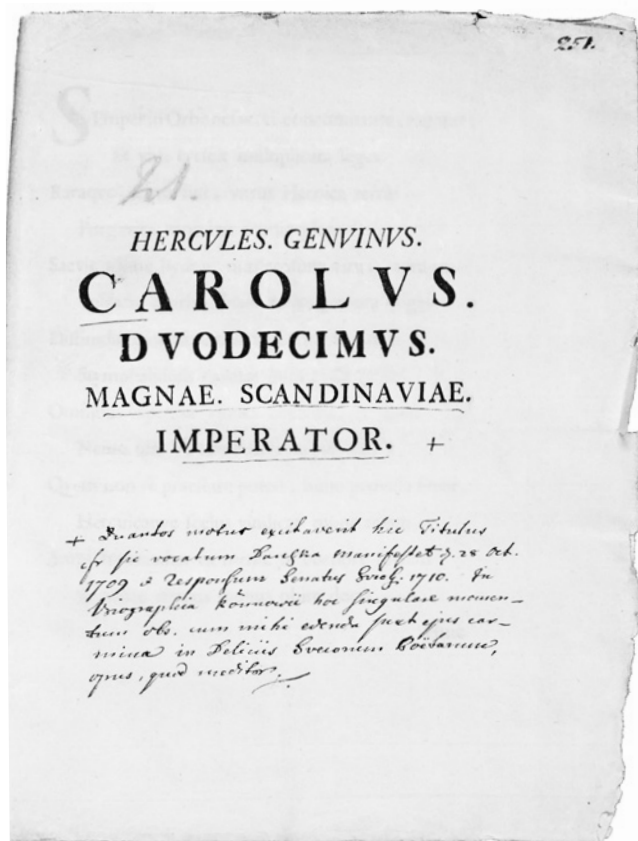 251.
21.
HERCVLES. GENVINVS.
CAROLVS.
DVODECIMVS.
MAGNAE. SCANDINAVIAE.
IMPERATOR. +
+ Quantos motus excitaverit hic Titulus
cfr sic vocatum Danska Manifestet d. 28 Oct.
1709 & Responsum Senatus Sviog. 1710. In
Biographia Rönnowii hoc singulare momen-
tum obs. cum mihi edenda sunt ejus car-
mina in Deliciis Svecorum Poëtarum,
opus, quod meditor.